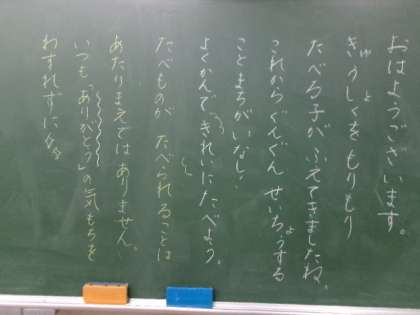 おはようございます。
きゅうしょくをもりもり
たべる子がふえてきましたね。
これからぐんぐん せいちょうする
ことまちがいなし!!
よくかんで、きれいにたべよう。
たべものが たべられることは
あたりまえではありません。
いつも「ありがとう」の気もちを
わすれずに